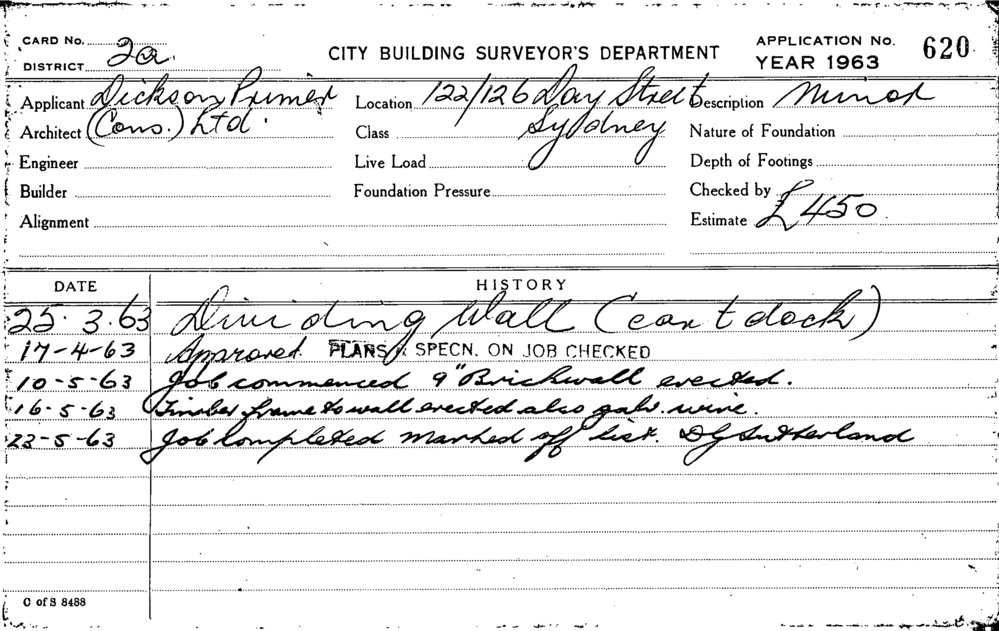 CARD No.
DISTRICT 2a.
CITY BUILDING SURVEYOR'S DEPARTMENT
APPLICATION No. 620
YEAR 1963
Applicant Dickson Primer
Architect (Cons.) Ltd.
Engineer
Builder
Alignment
Location 122/126 Day Street
Sydney
Class
Live Load
Foundation Pressure
Description Minor
Nature of Foundation
Depth of Footings
Checked by
Estimate £450
DATE HISTORY
25.3.63 Dividing Wall (cart dock)
17-4-63 Approved. PLANS & SPECN. ON JOB CHECKED
10-5-63 Job commenced 9" Brickwall erected.
16-5-63 Timber frame to wall erected also galv. wire.
23-5-63 Job completed marked off list. DG Sutherland
C of S 8488